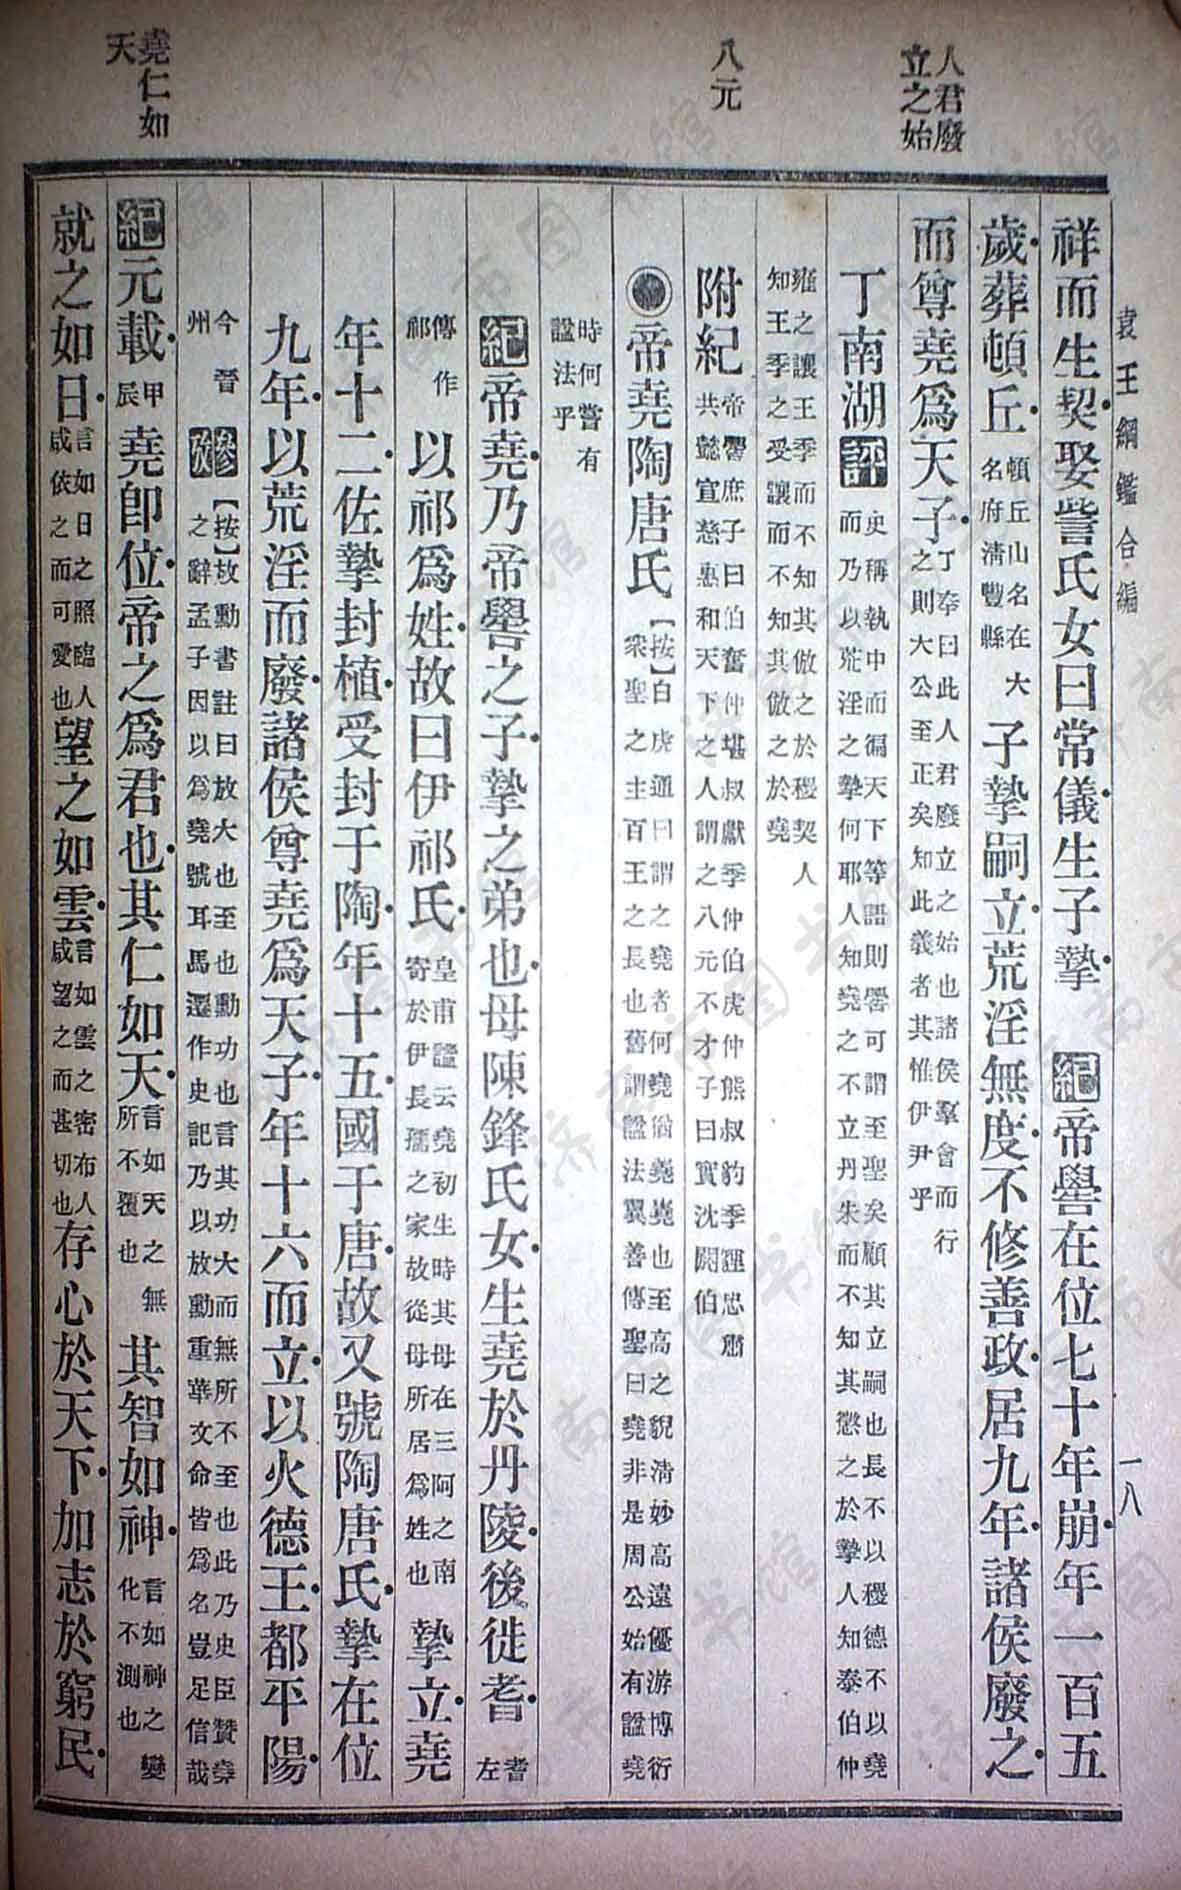 袁王綱鑑合編
一八
人君廢
立之始
八元
堯仁如
天
祥而生契娶訾氏女曰常儀生子摯 紀帝嚳在位七十年崩年一百五
歲葬頓丘頓丘山名在大名府淸豐縣子摯嗣立荒淫無度不修善政居九年諸侯廢之
而尊堯爲天子丁奉曰此人君廢立之始也諸侯羣會而行之則大公至正矣知此義者其惟伊尹乎
丁南湖評史稱執中而徧天下等語則嚳可謂至聖矣顧其立嗣也長不以稷德不以堯而乃以荒淫之摯何耶人知堯之不立丹朱而不知其懲之於摯人知泰伯仲
雍之讓王季而不知其倣之於稷契人知王季之受讓而不知其倣之於堯
附紀帝嚳庶子曰伯奮仲堪叔獻季仲伯虎仲熊叔豹季貍忠肅共懿宣慈惠和天下之人謂之八元不才子曰實沈閼伯
帝堯陶唐氏【按】白虎通曰謂之堯者何堯猶嶢嶢也至高之貌淸妙高遠優游博衍衆聖之主百王之長也舊謂諡法翼善傳聖曰堯非是周公始有諡堯
時何嘗有諡法乎
紀帝堯乃帝嚳之子摯之弟也母陳鋒氏女生堯於丹陵後徙耆耆左
傳作祁以祁爲姓故曰伊祁氏皇甫謐云堯初生時其母在三阿之南寄於伊長孺之家故從母所居爲姓也摯立堯
年十二佐摯封植受封于陶年十五國于唐故又號陶唐氏摯在位
九年以荒淫而廢諸侯尊堯爲天子年十六而立以火德王都平陽
今晉州參攷【按】放勳書註曰放大也至也勳功也言其功大而無所不至也此乃史臣贊堯之辭孟子因以爲堯號耳馬遷作史記乃以放勳重華文命皆爲名豈足信哉
紀元載甲辰堯卽位帝之爲君也其仁如天言如天之無所不覆也其智如神言如神之變化不測也
就之如日言如日之照臨人咸依之而可愛也望之如雲言如雲之密布人咸望之而甚切也存心於天下加志於窮民